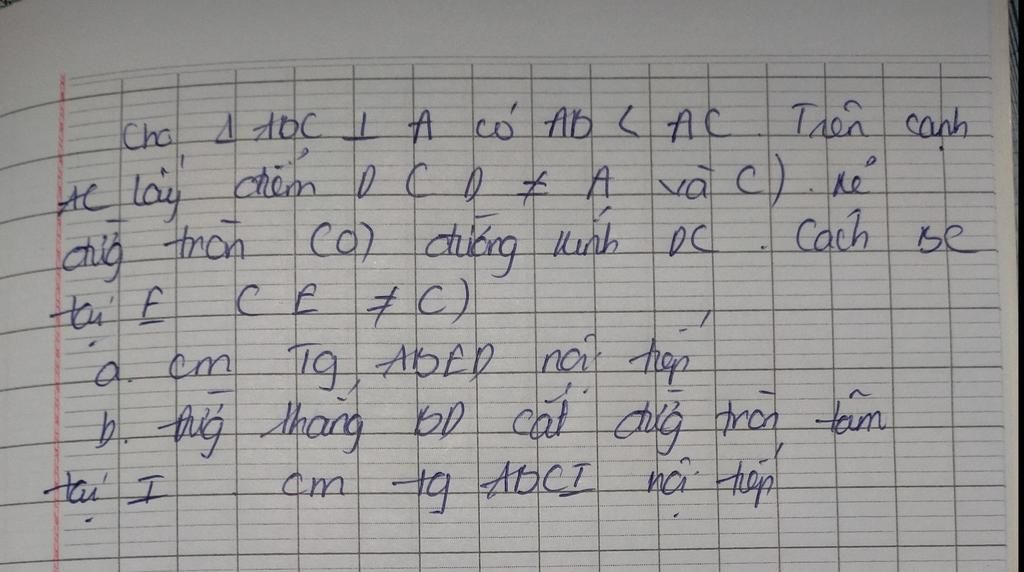 Cho Δ ABC ⊥ A có AB < AC. Trên cạnh
AC lấy điểm D ( D ≠ A và C). Kẻ
đường tròn (O) đường kính DC. Cách BC
tại E ( E ≠ C)
a. cm Tg ABED nội tiếp
b. Đường thẳng BD cắt đường tròn tâm
tại I cm tg ABCI nội tiếp